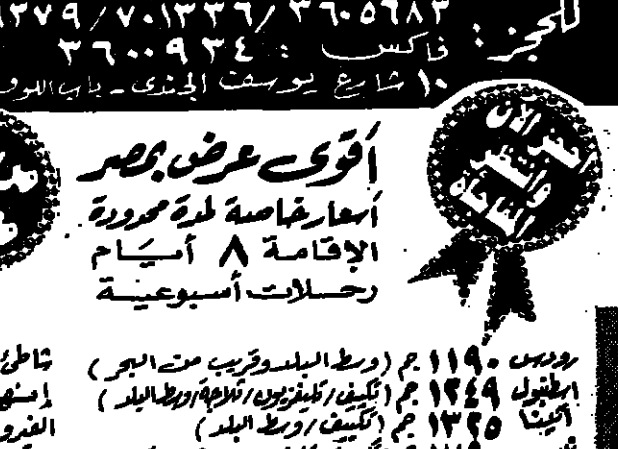 للحجز: ٣٦٠٥٦٨٣/٧٠١٣٣٦/٩٣٧٩
فاكس : ٣٦٠٠٩٣٤
١٠ شارع يوسف الجندى - باب اللوق
احضر الآن
وانتظر
المفاجأة
أقوى عرض بمصر
أسعار خاصة لمدة محدودة
الإقامة ٨ أيام
رحلات أسبوعية
رودس ١١٩٠ جم (وسط البلد وقريب من البحر)
اسطنبول ١٢٤٩ جم (تكييف/تليفزيون/ثلاجة/وسط البلد)
أثينا ١٣٢٥ جم (تكييف/وسط البلد)
شاطئ